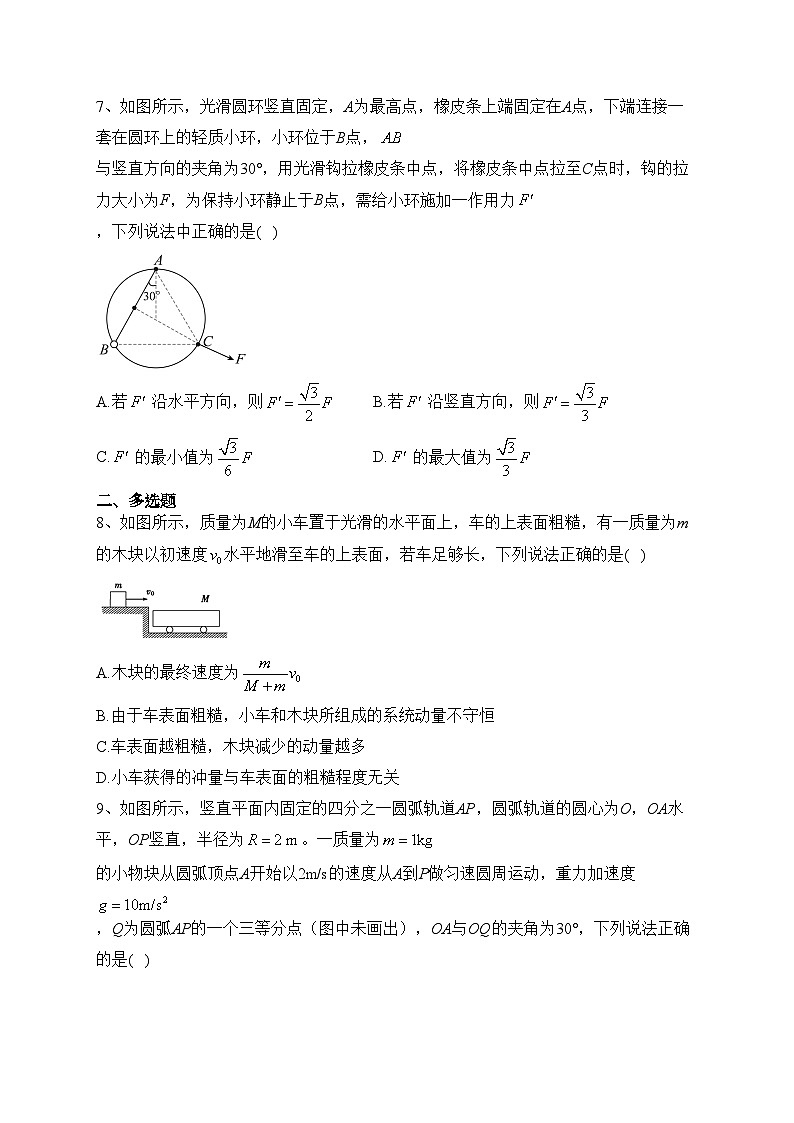 7、如图所示，光滑圆环竖直固定，A为最高点，橡皮条上端固定在A点，下端连接一
套在圆环上的轻质小环，小环位于B点， AB
与竖直方向的夹角为30°，用光滑钩拉橡皮条中点，将橡皮条中点拉至C点时，钩的拉
力大小为F，为保持小环静止于B点，需给小环施加一作用力 F′
，下列说法中正确的是( )
A
30°
B
C
F
A.若 F′ 沿水平方向，则 F′ = √3/2 F B.若 F′ 沿竖直方向，则 F′ = √3/3 F
C. F′ 的最小值为 √3/6 F D. F′ 的最大值为 √3/3 F
二、多选题
8、如图所示，质量为M的小车置于光滑的水平面上，车的上表面粗糙，有一质量为m
的木块以初速度 v₀ 水平地滑至车的上表面，若车足够长，下列说法正确的是( )
m v₀ M
A.木块的最终速度为 m/(M+m) v₀
B.由于车表面粗糙，小车和木块所组成的系统动量不守恒
C.车表面越粗糙，木块减少的动量越多
D.小车获得的冲量与车表面的粗糙程度无关
9、如图所示，竖直平面内固定的四分之一圆弧轨道AP，圆弧轨道的圆心为O，OA水
平，OP竖直，半径为 R = 2 m 。一质量为 m = 1kg
的小物块从圆弧顶点A开始以2m/s的速度从A到P做匀速圆周运动，重力加速度
g = 10m/s²
，Q为圆弧AP的一个三等分点（图中未画出），OA与OQ的夹角为30°，下列说法正确
的是( )